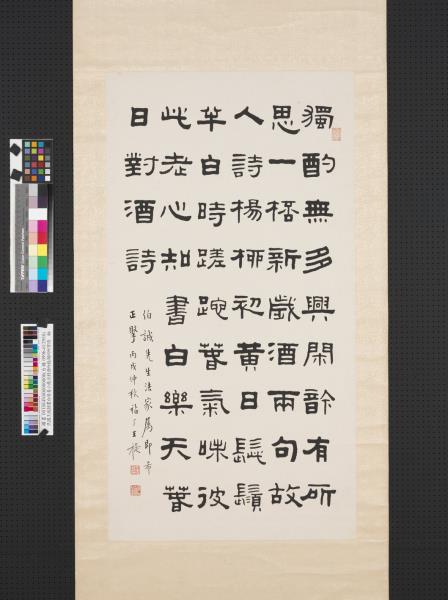 獨酌無多興閑訡有所
思一桮新歲酒兩句故
人詩楊桺初黃日髭鬚
半白時蹉跎春氣味彼
此老心知書白樂天春
日對酒詩
伯誠先生法家屬即希
正 丙戌仲秋福厂王禔